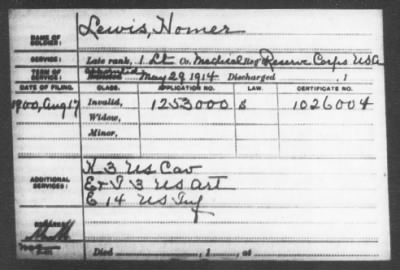 NAME OF SOLDIER: Lewis, Homer
SERVICE: Late rank, 1 Lt Co. Medical Reg Reserve Corps USA
TERM OF SERVICE: Appointed May 29, 1914 Discharged , 1
DATE OF FILING. CLASS. APPLICATION NO. LAW. CERTIFICATE NO.
1900, Aug 17 Invalid, 1253000 1026004
Widow,
Minor,
ADDITIONAL SERVICES: K 3 US Cav
E & I 3 US Art
E 14 US Inf
REMARKS:
Died , 1 , at